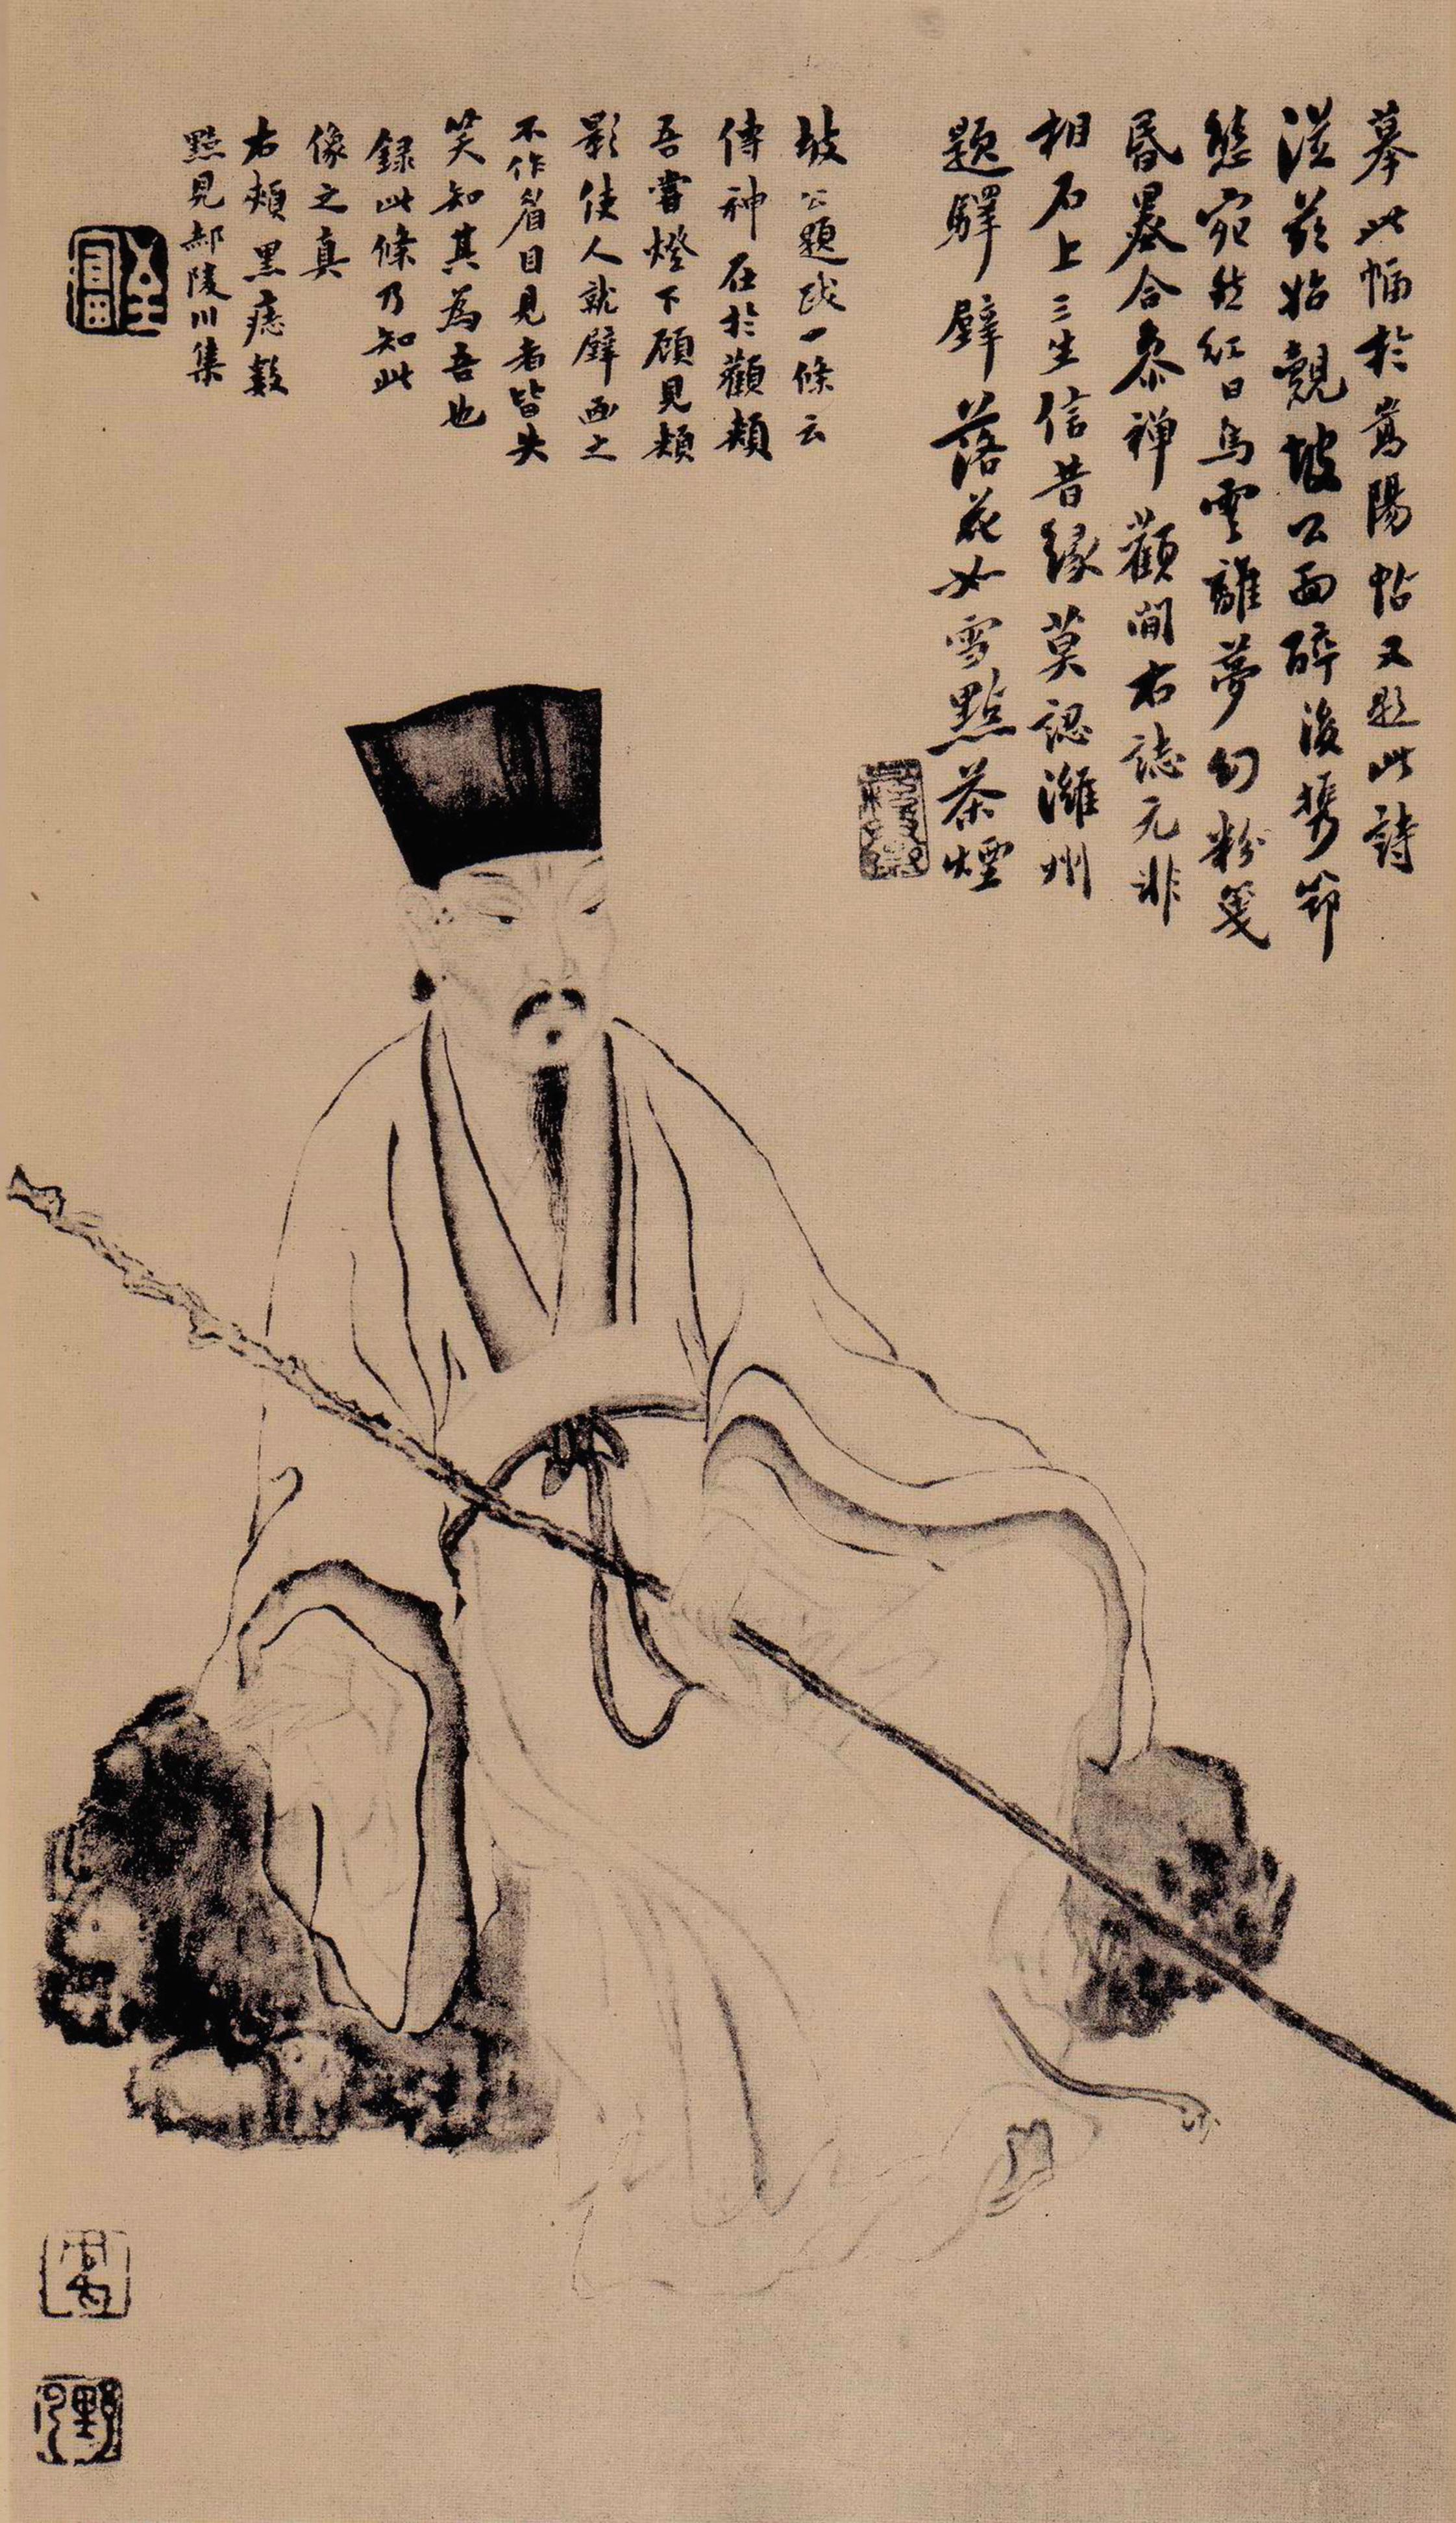 摹此幅於嵩陽帖又題此詩
從茲始覿坡公面醉後携筇
態宛然紅日烏雲離夢幻粉箋
昏墨合叅禪顴間右誌元非
相石上三生信昔緣莫認濰州
題驛壁落花如雪點茶煙
坡公題跋一條云
傳神在於顴頰
吾嘗燈下顧見頰
影使人就壁畫之
不作眉目見者皆失
笑知其為吾也
録此條乃知此
像之真
右頰黑痣數
點見郝陵川集